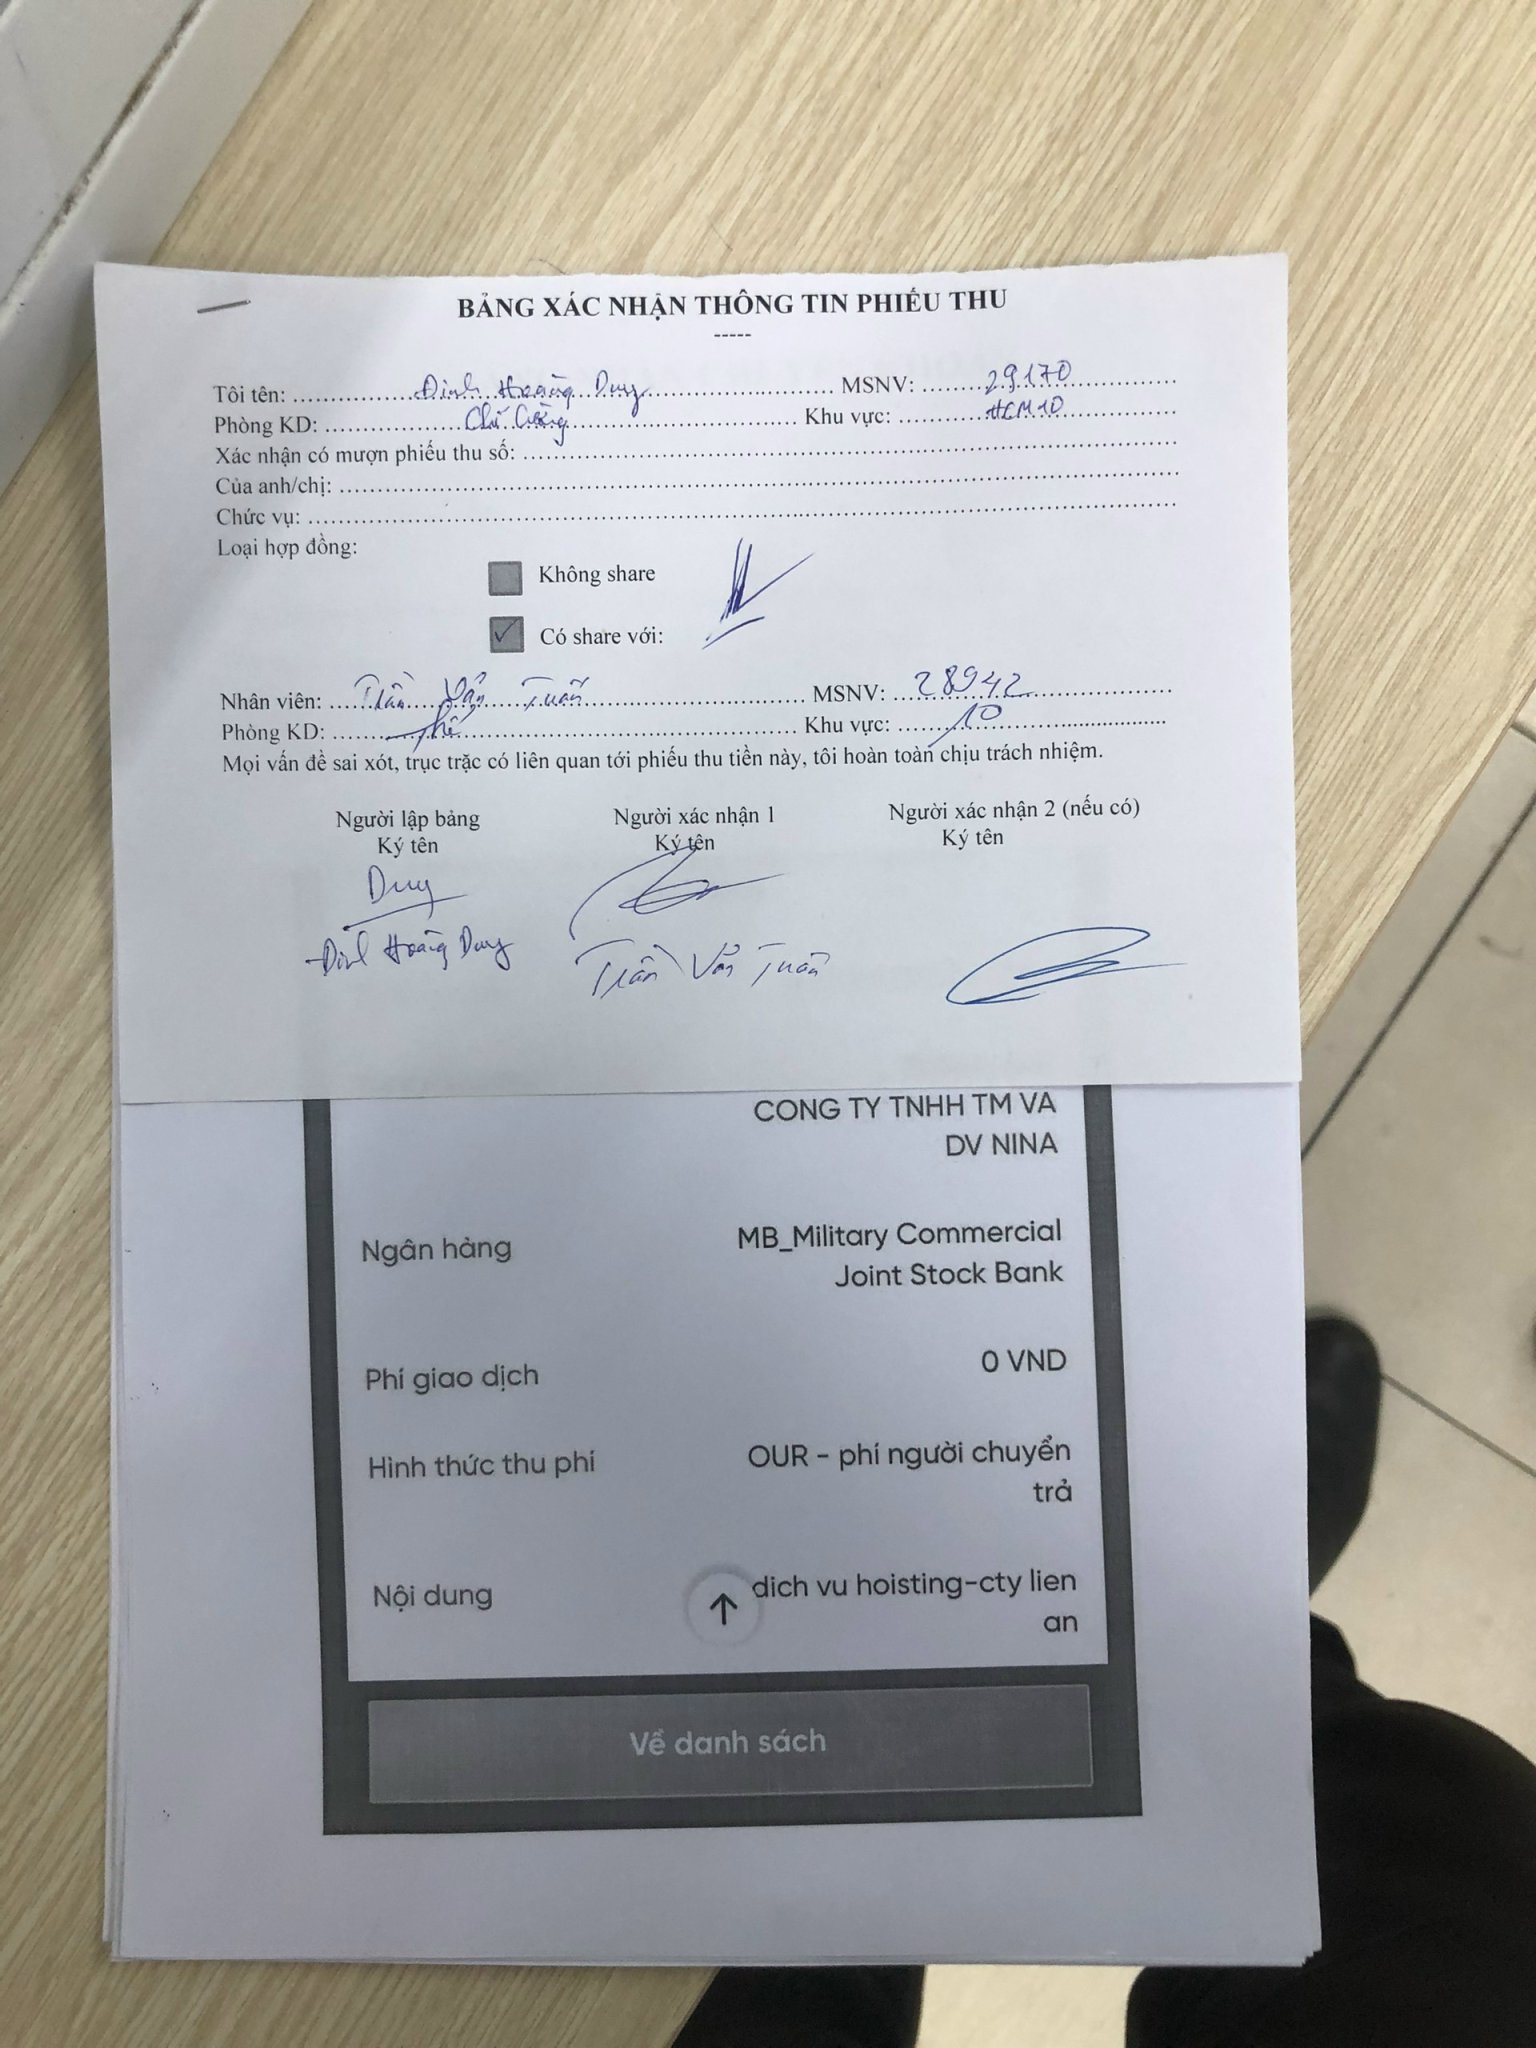 BẢNG XÁC NHẬN THÔNG TIN PHIẾU THU
-----
Tôi tên: Đinh Hoàng Duy MSNV: 29170
Phòng KD: Chí Cường Khu vực: HCM10
Xác nhận có mượn phiếu thu số:
Của anh/chị:
Chức vụ:
Loại hợp đồng:
Không share
Có share với:
Nhân viên: Trần Văn Tuấn MSNV: 28942
Phòng KD: Khu vực: 10
Mọi vấn đề sai xót, trục trặc có liên quan tới phiếu thu tiền này, tôi hoàn toàn chịu trách nhiệm.
Người lập bảng Người xác nhận 1 Người xác nhận 2 (nếu có)
Ký tên Ký tên Ký tên
Duy
Đinh Hoàng Duy Trần Văn Tuấn
CONG TY TNHH TM VA
DV NINA
Ngân hàng MB_Military Commercial
Joint Stock Bank
Phí giao dịch 0 VND
Hình thức thu phí OUR - phí người chuyển
trả
Nội dung dich vu hoisting-cty lien
an
Về danh sách